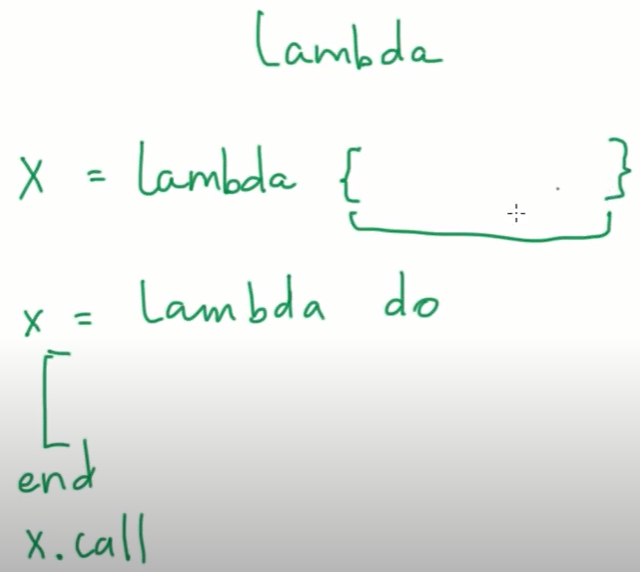 Lambda
X = Lambda { }
x = Lambda do
[
end
x.call